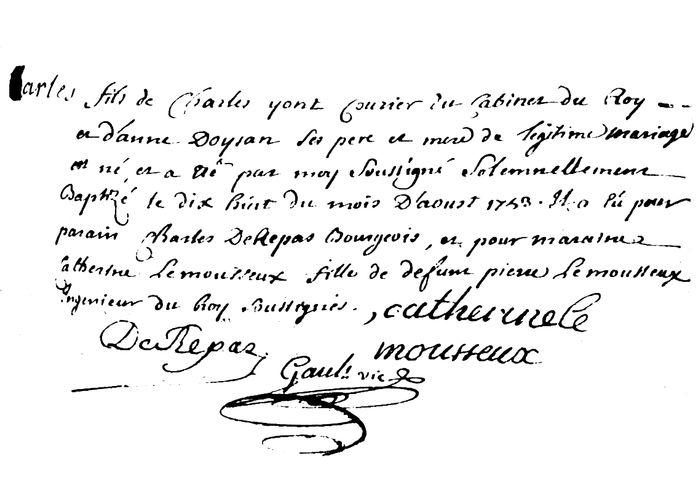 Charles fils de Charles yont Courier du Cabinet du Roy
et d'anne Doysan Ses pere et mere de legitime mariage
est né, et a été par moy Soussigné Solemnellement
Baptizé le dix huit du mois D'aoust 1743. Il a Eû pour
parain Charles DeRepas Bourgeois, et pour maraine
Catherine Lemousseux fille de defunt pierre Lemousseux
Ingenieur du Roy Soussignés. , catherine le
DeRepas mousseux
Gault vic